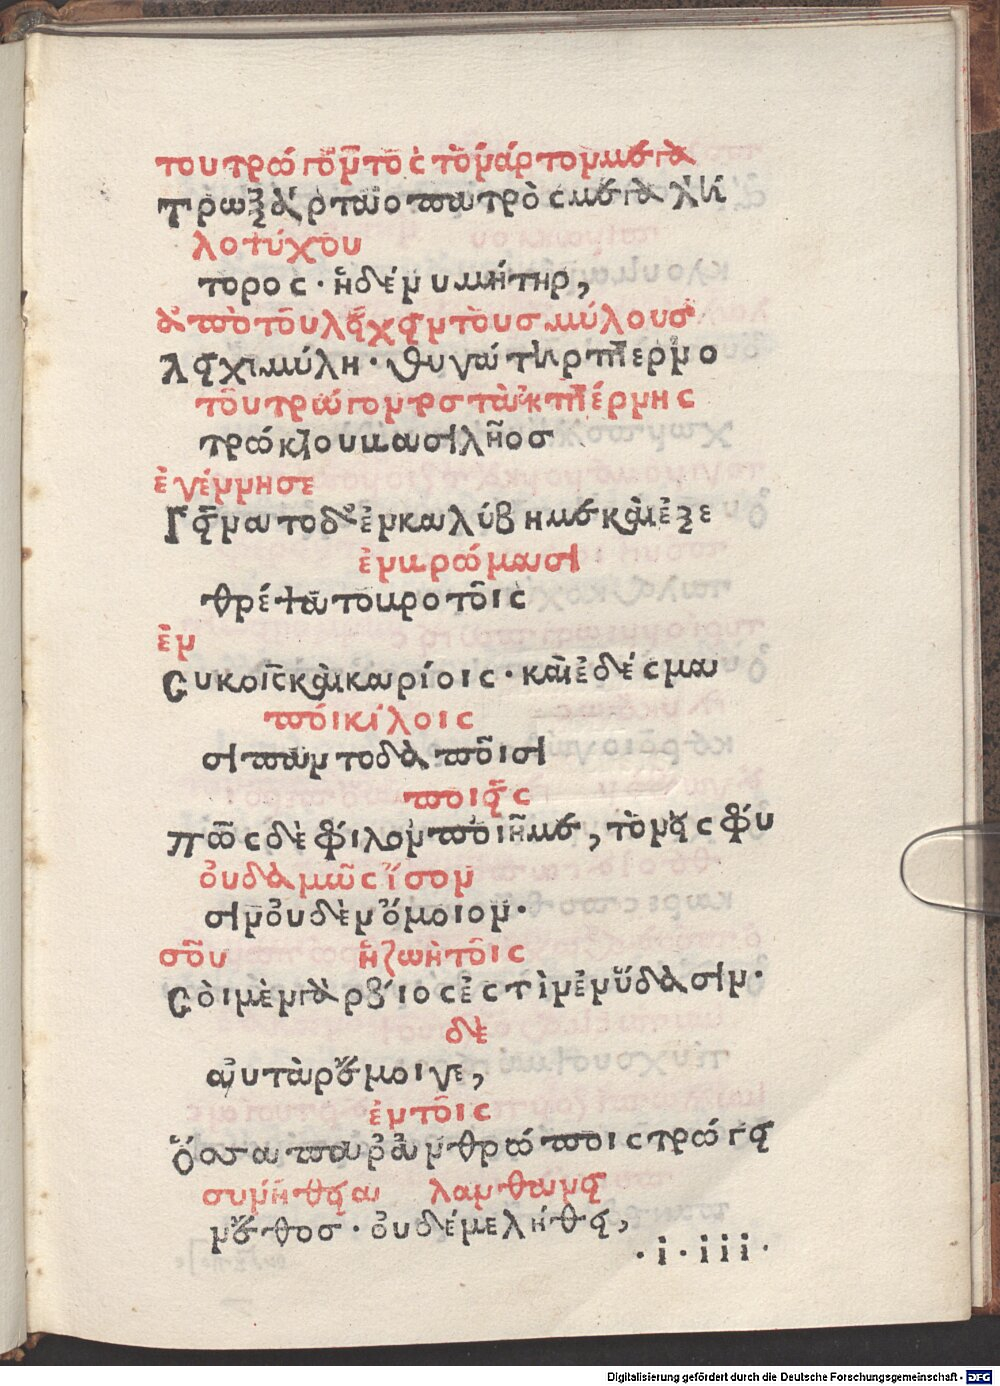 του τρώγοντος τὸν ἄρτον μεγα
Τρωξάρταο πατρὸς μεγαλή
λοψύχου
τορος· ἡ δέ νυ μήτηρ,
ἀπὸ τοῦ λείχειν τοὺς μύλους
Λειχιμύλη· θυγάτηρ πτερνο
τοῦ τρώγοντος τὰ ἐκ πτέρνης
τρώκτου βασιλῆος
ἐγέννησε
Γείνατο δ' ἐν καλύβη με καὶ ἐξε
ἐν βρώμασι
θρέψατο βροτοῖς
ἐν
Συκοῖς καὶ καρίοις· καὶ ἐδέσμα
ποικίλοις
σι παντοδαποῖσι
ποιεῖς
Πῶς δὲ φίλον ποιῆ με, τὸν εἰς φύ
οὐδαμῶς ἴσον
σιν οὐδὲν ὅμοιον·
σοῦ ἡ ζωὴ τοῖς
Σοὶ μὲν γὰρ βίος ἐστὶν ἐν ὕδασιν·
δὲ
αὐτὰρ ἔμοιγε,
ἐν τοῖς
Ὅσα παρ' ἀνθρώποις τρώγει
συνήθεια λανθάνει
ν ἔθος· οὐδέ με λήθει,
·i·iii·
Digitalisierung gefördert durch die Deutsche Forschungsgemeinschaft - DFG